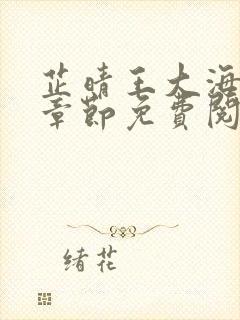 芷晴王大海
章節免費閱
緒花